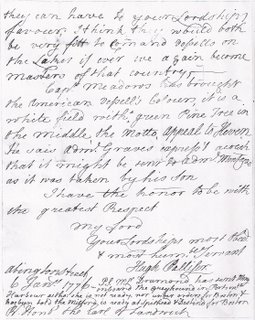 they can have to your Lordship's
favour. I think they would both
be very fitt to comand vessells on
the Lakes if ever we again become
masters of that country.
Capt Meadows has brought
the American vessells Colours, it is a
white field with a green Pine Tree in
the middle, the Motto, appeal to Heven
He said Adm Graves a wish
that it might be sent to Adm Montagu
as it was taken by his son
I have the honor to be with
the greatest Respect
My Lord
Your Lordships most
& most hum Servant
Hugh Palliser
6 Jan 1776
Harbour not ready, nor under orders for Boston &
for Boston
Rt Honl the Earl of Sandwich